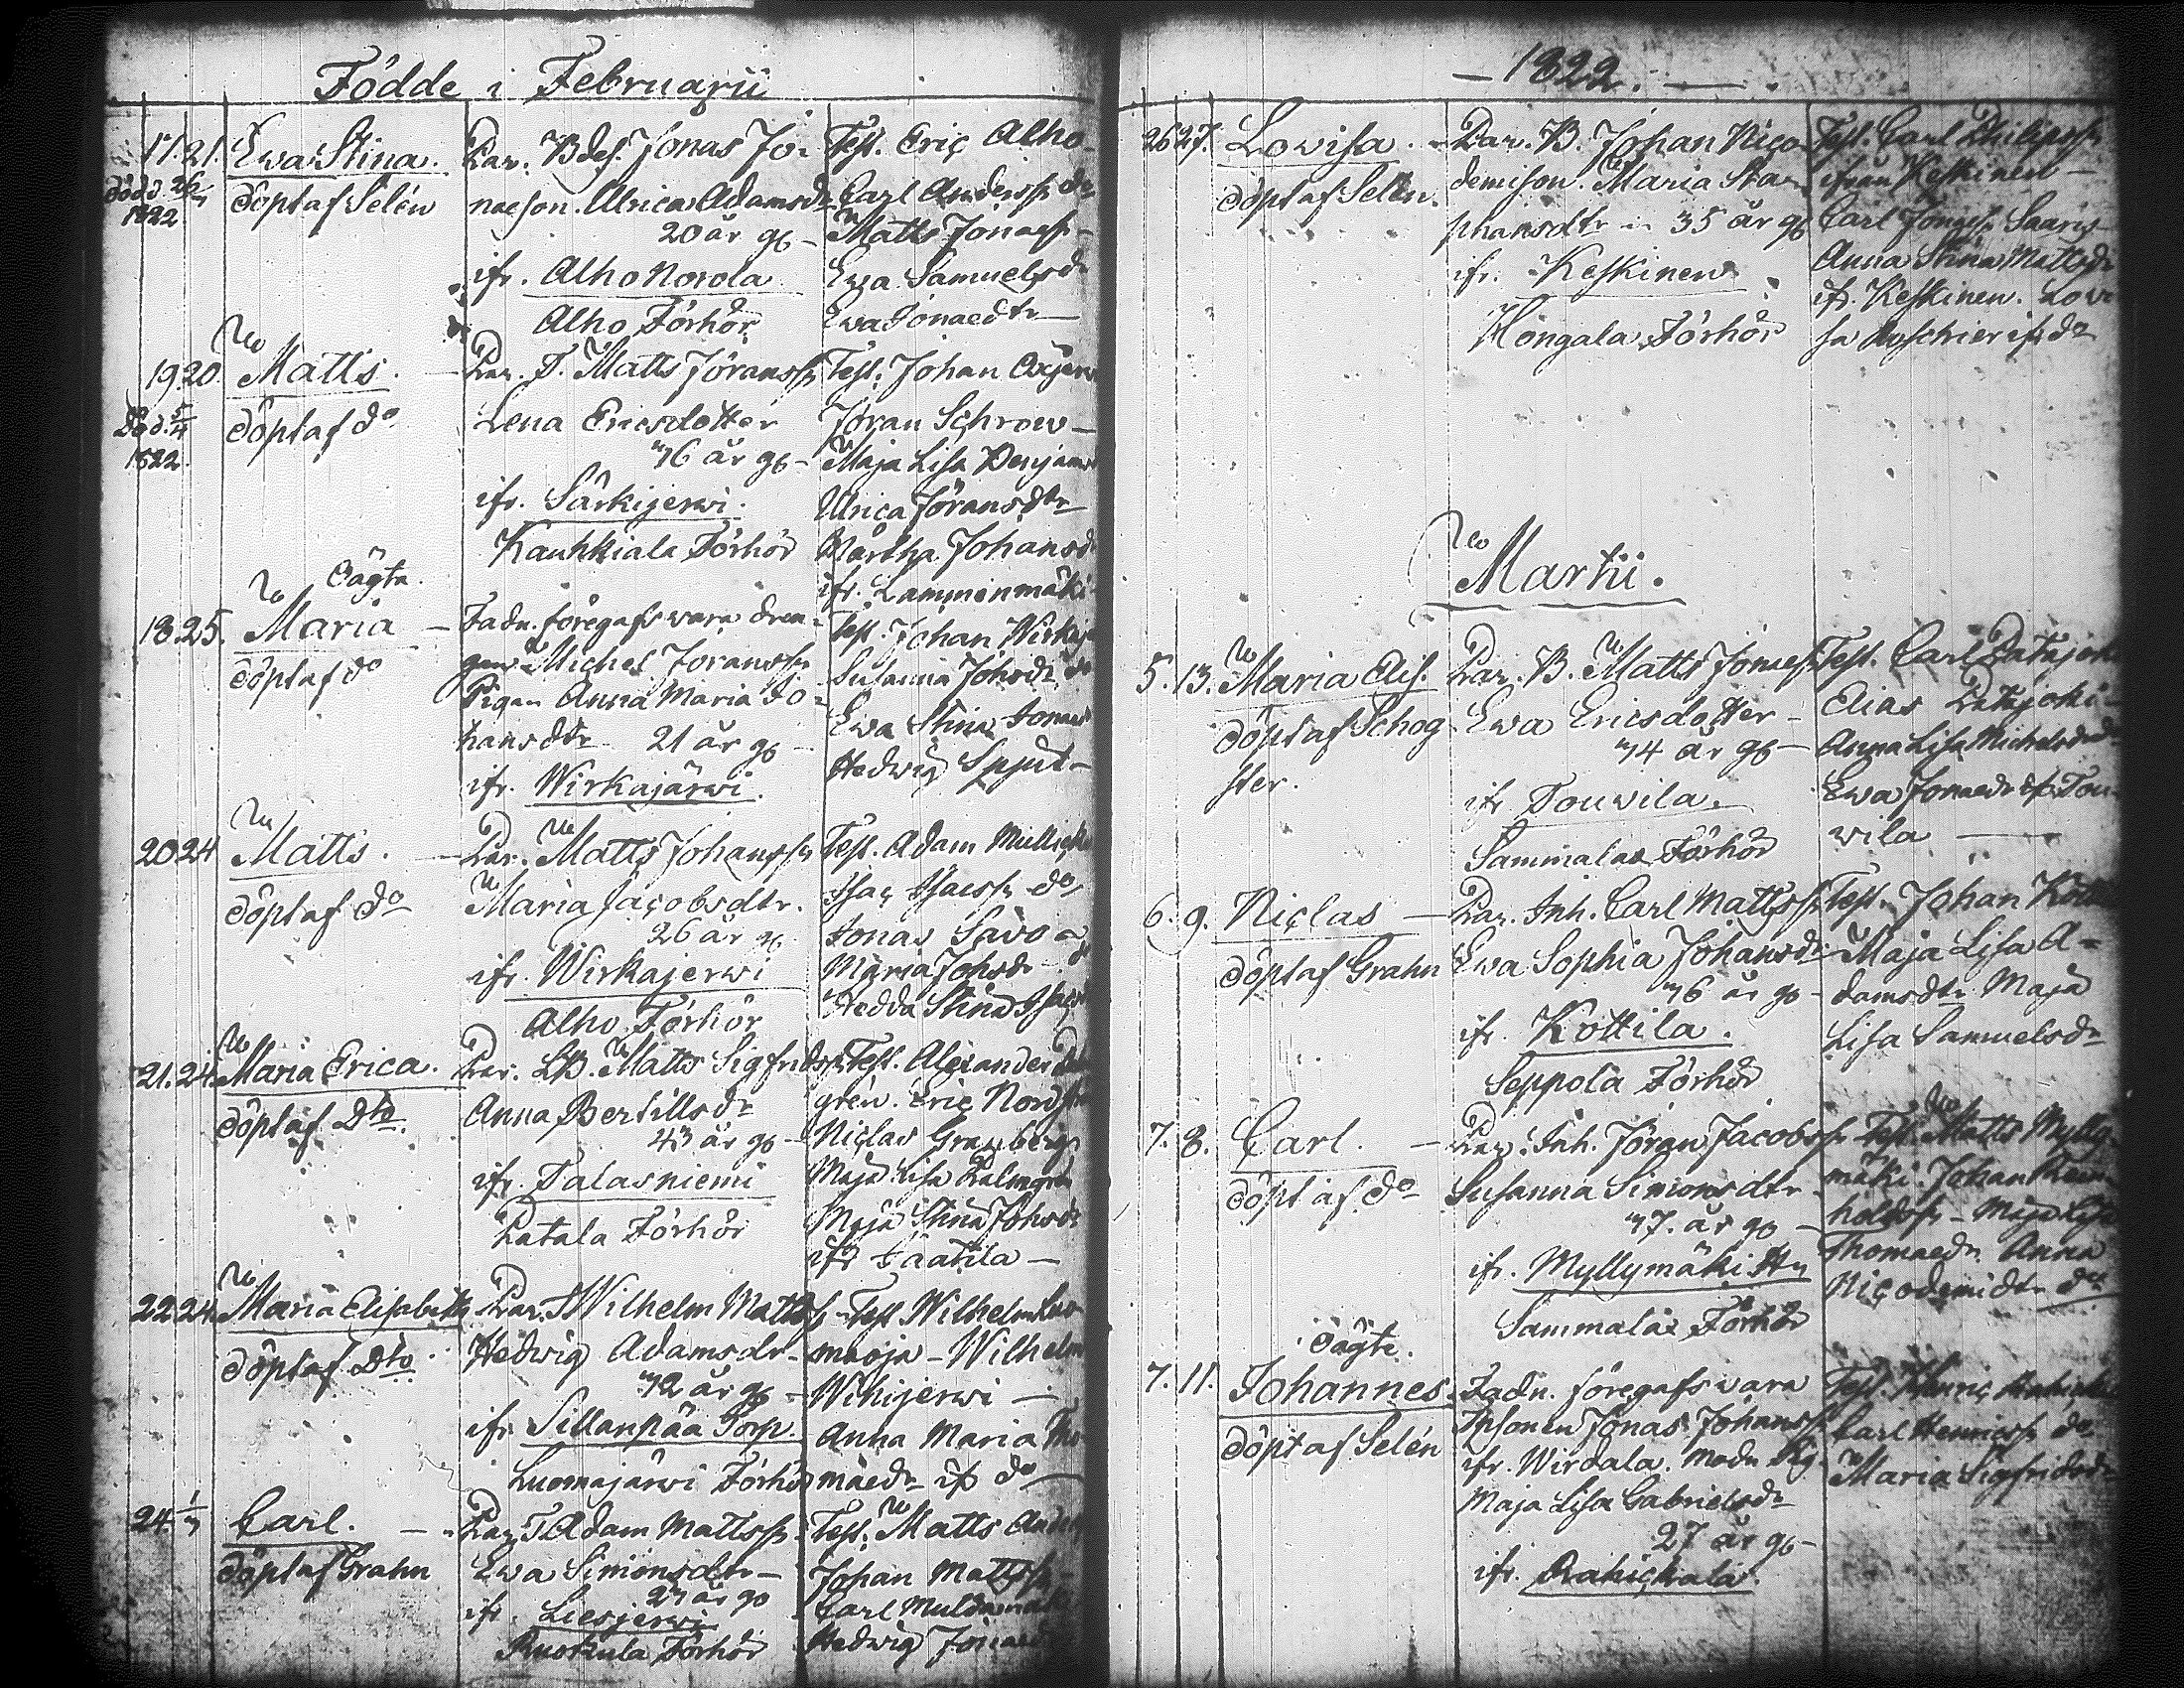 Födde i Februarii
17. 21. Ewa Stina.
död 26/7 1822
döpt af Selén
Par. Bdes. Jonas Jo-
naeson. Ulrica Adamsdr
20 år g6
ifr. Alho Norola
Alho Förhör
Test. Eric Alho
Carl Anderss. do
Matts Jonaess.
Ewa Samuelsdr
Ewa Jonaedtr
19. 20. Matts.
död 5/4
1822.
döpt af do
Par. T. Matts Jöranss.
Lena Ericsdotter
46 år g6
ifr. Särkijerwi.
Kauhkiala Förhör
Test. Johan
Jöran Schrow
Maja Lisa Benjams
Ulrica Jöransdtr
Märtha Johansdr
ifr. Lamminmäki
Oägta.
18. 25. Maria
döpt af do
Fadn. föregafs vara dren-
gen Michel Joranss.
Pigan Anna Maria Jo-
hansdtr 21 år g6
ifr. Wirkajärwi.
Test. Johan
Susanna Johsdr do
Ewa Stina Jonae
Hedwig Spjut
20. 24. Matts.
döpt af do
Par. Matts Johanss.
Maria Jacobsdtr.
26 år g6
ifr. Wirkajerwi
Alho Förhör
Test. Adam
Isac Isacss. do
Jonas Savo
Maria Johsdr
Hedda Stina
21. 24. Maria Erica.
döpt af Dto.
Par. LB. Matts Sigfridss.
Anna Bertillsdr
43 år g6
ifr. Talasniemi
Ratala Förhör
Test. Alexander
grén. Eric
Niclas Granberg
Maja Lisa Palmgrén
Maja Stina Johsdr
ifr.
22. 24. Maria Elisabeth
döpt af Dto
Par. T. Wilhelm Matts
Hedwig Adamsdr
42 år g6
ifr. Sillanpää Torp.
Luomajärwi Förhör
Test. Wilhelm Luo-
maoja - Wilhelm
Wihijerwi
Anna Maria Tho-
maedr ifr do
24. 1/3 Carl.
döpt af Grahn
Par. T. Adam Mattss.
Ewa Simonsdtr
23 år g6
ifr. Liesjerwi
Ruokula Förhör
Test. Matts
Johan Mattss.
Carl
Hedwig Jonaed
1822.
26. 27. Lovisa.
döpt af Selén.
Par. B. Johan Nico-
demison. Maria Sta-
phansdtr 35 år g6
ifr. Keskinen
Hongala Förhör
Test. Carl Philipss.
ifrån Keskinen
Carl Jonaess. Saaris
Anna Stina Mattsdr
ifr. Keskinen. Lovi-
sa Roschier ifr do
Martii.
5. 13. Maria Elis.
döpt af Schog-
ster.
Par. B. Matts Jonaess.
Ewa Ericsdotter
44 år g6
ifr Touwila.
Sammalas Förhör
Test. Carl Ratajoki
Elias Ratajoki
Anna Lisa Michelsdr
Ewa Jonaedr ifr Tou-
wila
6. 9. Niclas
döpt af Grahn
Par. Inh. Carl Mattss.
Ewa Sophia Johansdr
46 år g6
ifr. Kottila.
Seppola Förhör
Test. Johan
Maja Lisa A-
damsdtr Maja
Lisa Samuelsdr
7. 8. Carl.
döpt af do
Par. Inh. Jöran Jacobss.
Susanna Simonsdtr
47. år g6
ifr. Myllymäki
Sammalas Förhör
Test. Matts Mylly-
mäki. Johan Rein-
holdss. Maja Lisa
Thomaedr. Anna
Nicodemidtr do
Oägte.
7. 11. Johannes.
döpt af Selén
Fadn. föregafs vara
Johanss.
ifr. Wirdala. Modn Pig.
Maja Lisa Gabrielsdr
27 år g6
ifr. Rahickala.
Test. Henric
Carl Henricss. do
Maria Sigfridsdr